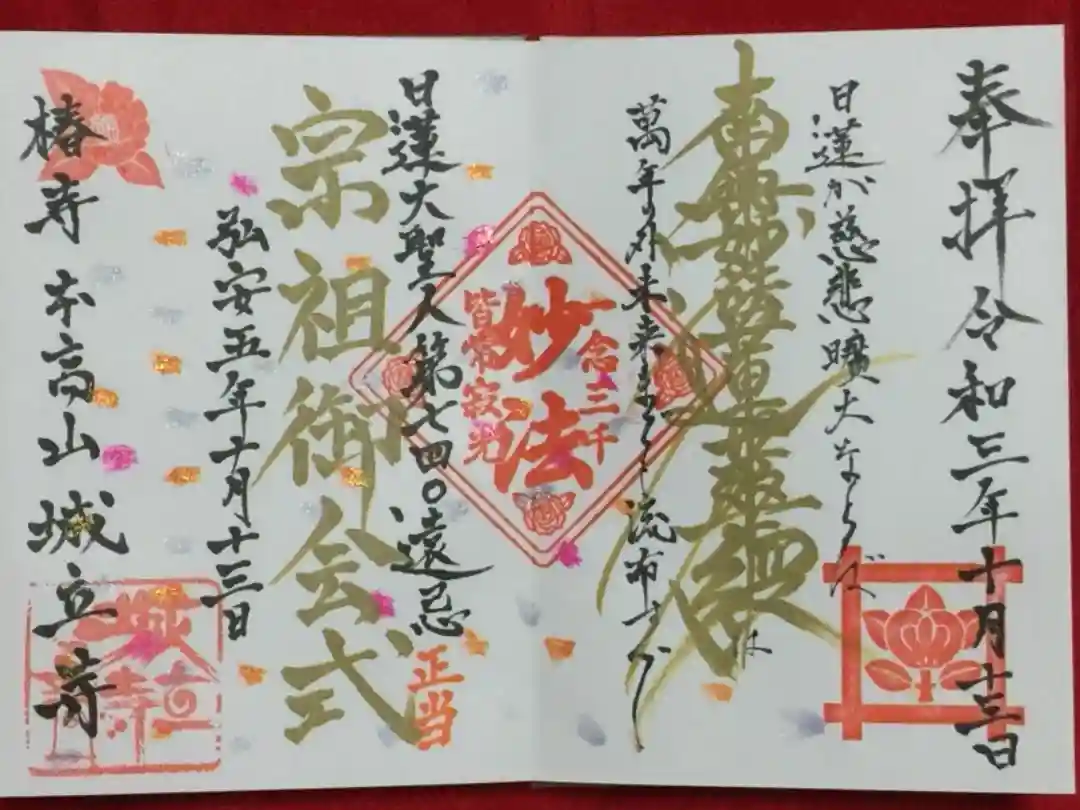 奉拝 令和三年十月十三日
日蓮が慈悲曠大ならば
南無妙法蓮華経は
萬年の外未来までも流布すべし
一念三千
妙法
皆常寂光
日蓮大聖人第七四〇遠忌
正当
宗祖御会式
弘安五年十月十三日
椿寺 本高山 城立寺
城立寺